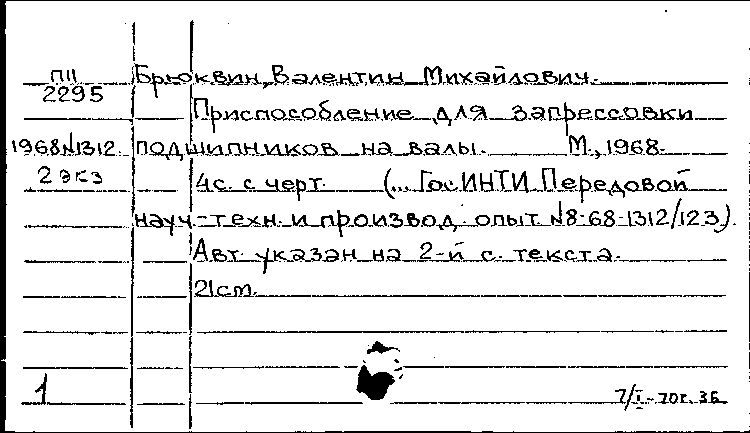 ПII Брюквин, Валентин Михайлович.
2295
Приспособление для запрессовки
1968№1312. подшипников на валы. М., 1968.
2 экз 4с. с черт. (... ГосИНТИ. Передовой
науч.-техн. и производ. опыт №8-68-1312/123).
Авт. указан на 2-й с. текста.
21см.
1 7/I-70г. 36